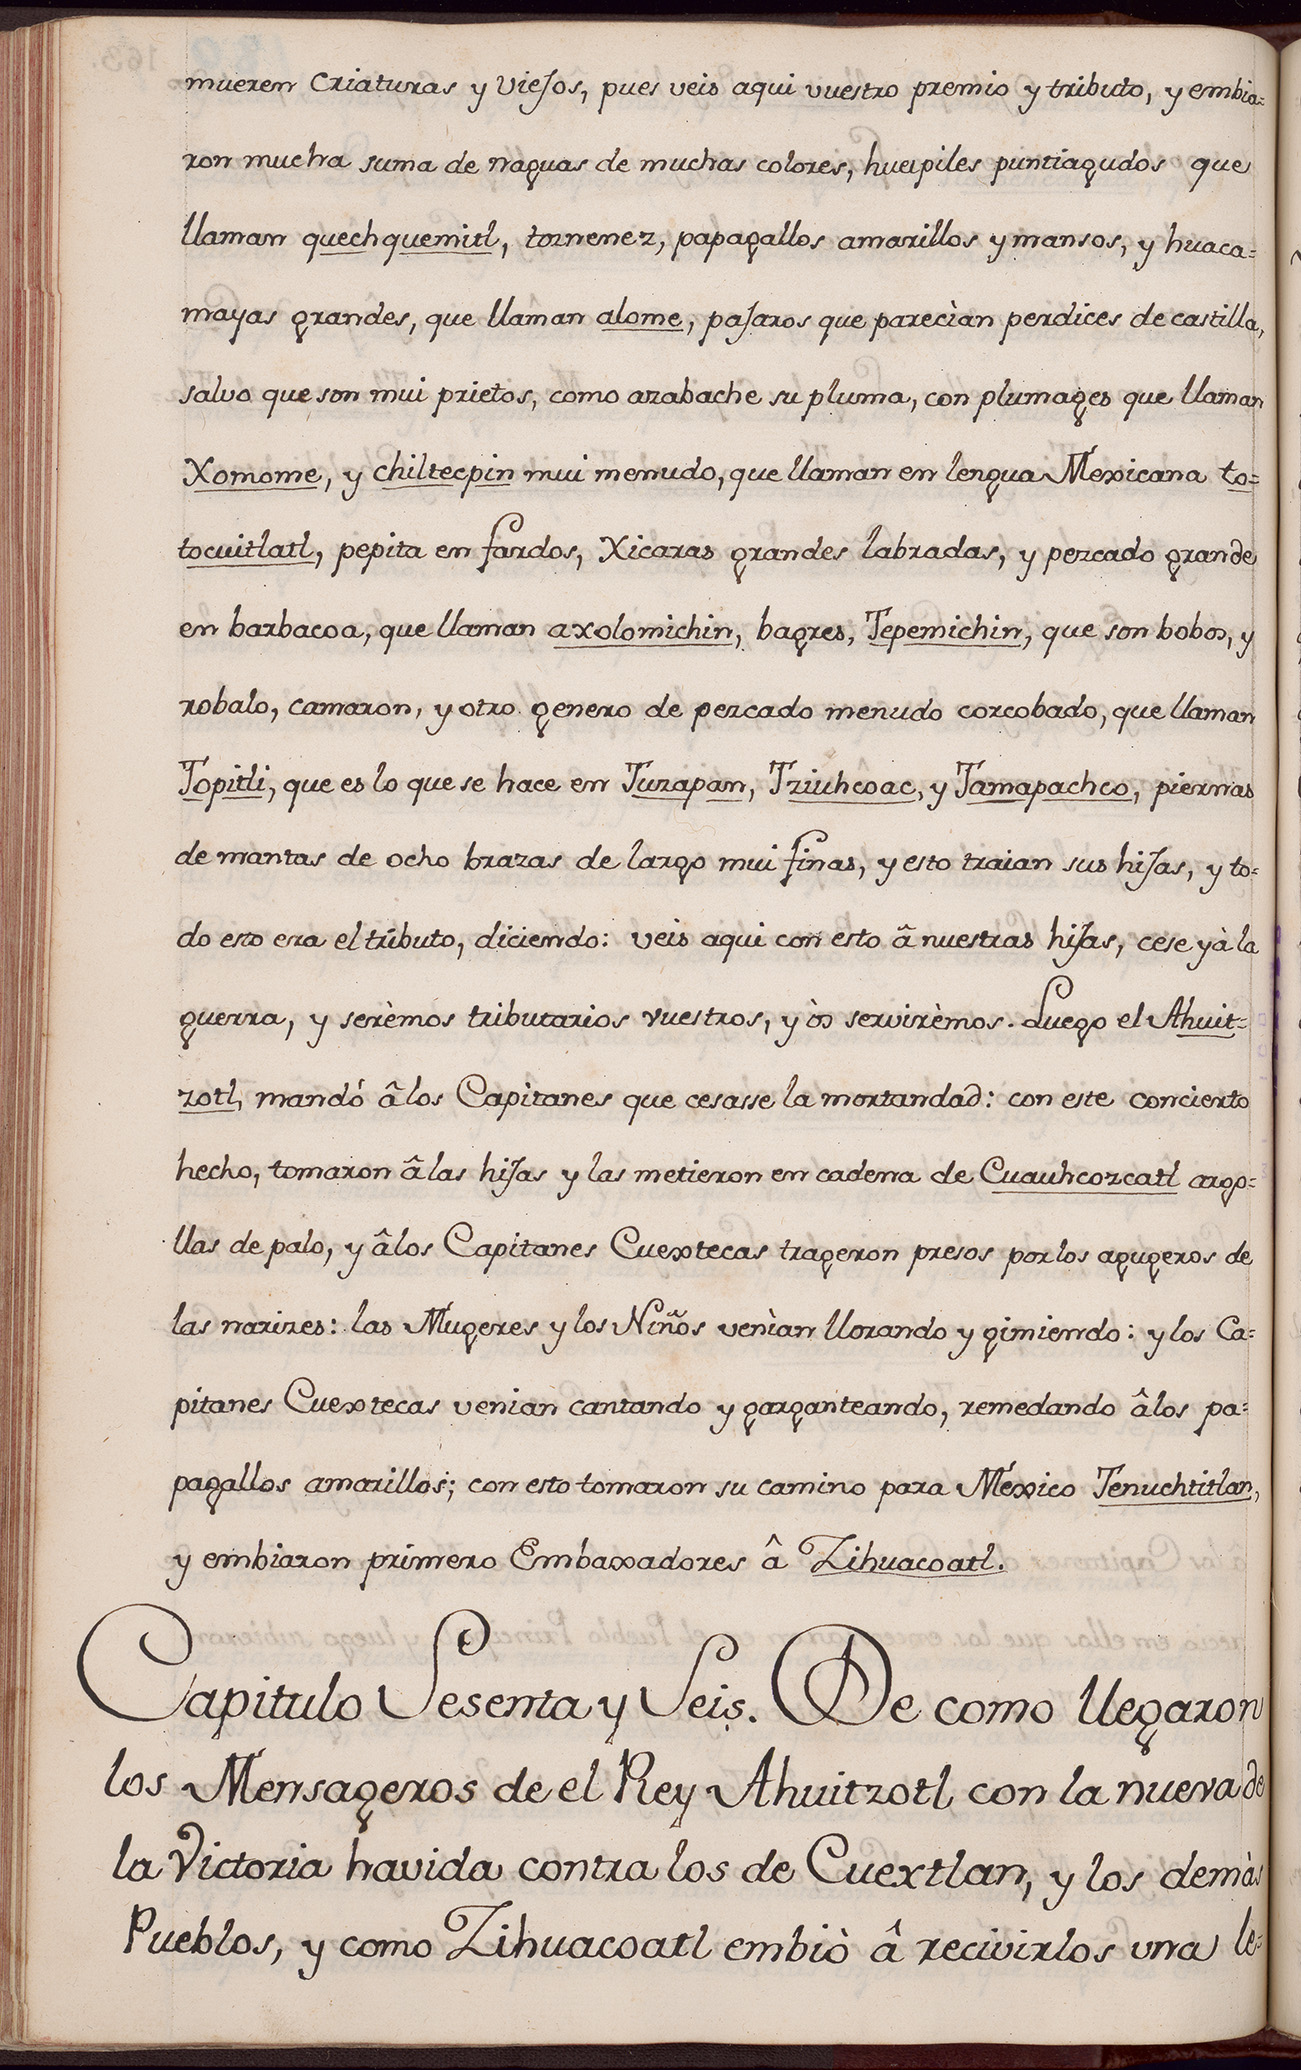 mueren criaturas y viejos, pues veis aqui vuestro premio y tributo, y embia=
ron mucha suma de naguas de muchas colores, hueipiles puntiagudos que
llaman quechquemitl, tornenez, papagallos amarillos y mansos, y huaca=
mayas grandes, que llâman alome, pajaros que parecìan perdices de castilla,
salvo que son mui prietos, como azabache su pluma, con plumages que llaman
Xomome, y chiltecpin mui menudo, que llaman en lengua Mexicana to=
tocuitlatl, pepita en fardos, Xicaras grandes labradas, y pezcado grande
en barbacoa, que llaman axolomichin, bagres, Tepemichin, que son bobos, y
robalo, camaron, y otro genero de pezcado menudo corcobado, que llaman
Topitli, que es lo que se hace en Tuzapan, Tziuhcoac, y Tamapachco, piernas
de mantas de ocho brazas de largo mui finas, y esto traian sus hijas, y to=
do esto era el tributo, diciendo: veis aqui con esto â nuestras hijas, cese yà la
guerra, y serèmos tributarios vuestros, y òs servirèmos. Luego el Ahuit=
zotl, mandó â los Capitanes que cesasse la mortandad: con este concierto
hecho, tomaron â las hijas y las metieron en cadena de Cuauhcozcatl argo=
llas de palo, y â los Capitanes Cuextecas trageron presos por los agugeros de
las narizes: las Mugeres y los Niños venìan llorando y gimiendo: y los Ca=
pitanes Cuextecas venian cantando y garganteando, remedando â los pa=
pagallos amarillos; con esto tomaron su camino para México Tenuchtitlan,
y embiaron primero Embaxadores â Zihuacoatl.
Capitulo Sesenta y Seis. De como llegaron
los Mensageros de el Rey Ahuitzotl con la nueva de
la Victoria havida contra los de Cuextlan, y los demàs
Pueblos, y como Zihuacoatl embiò â recivirlos una le=